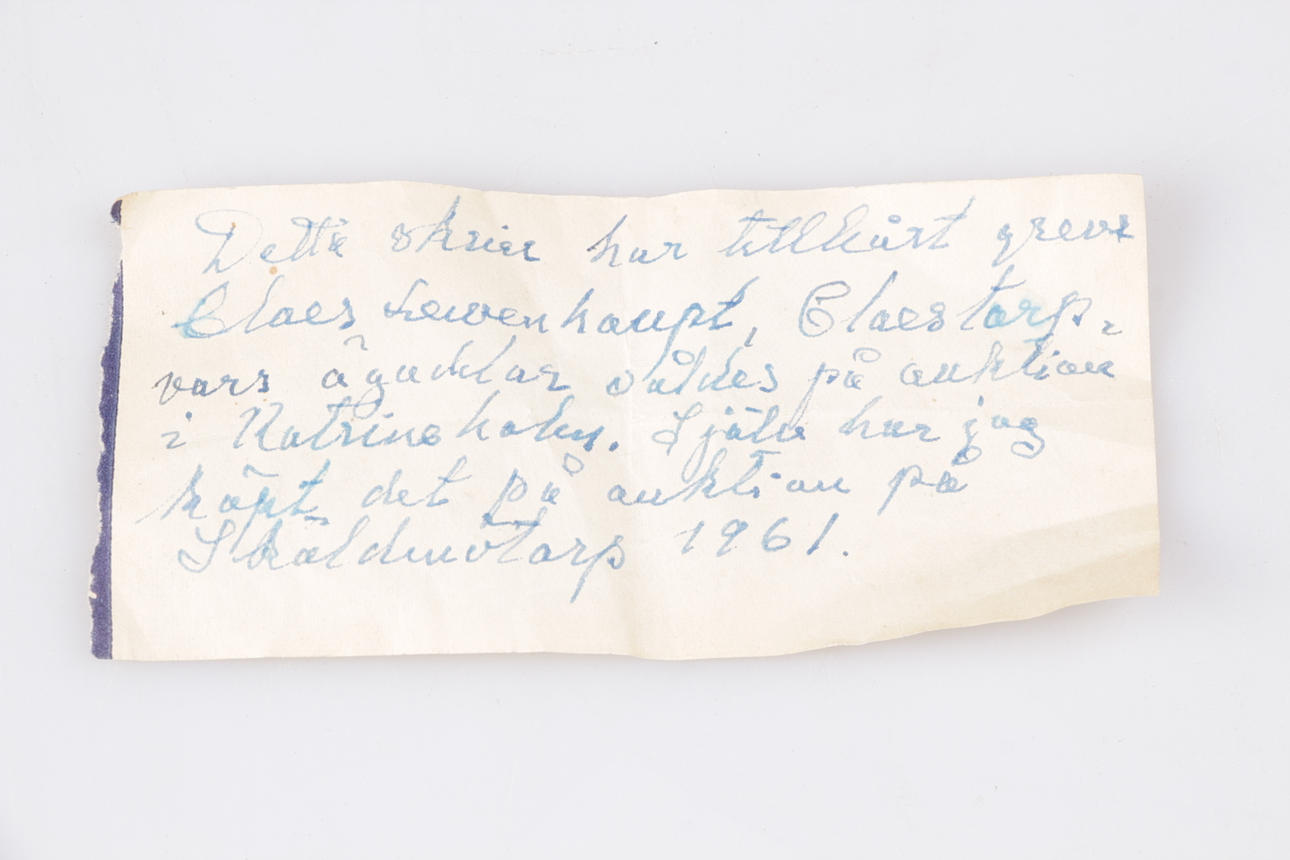 Detta skrin har tillhört greve
Claes Lewenhaupt, Claestorp,
vars ägodelar såldes på auktion
i Katrineholm. Själv har jag
köpt det på auktion på
1961.